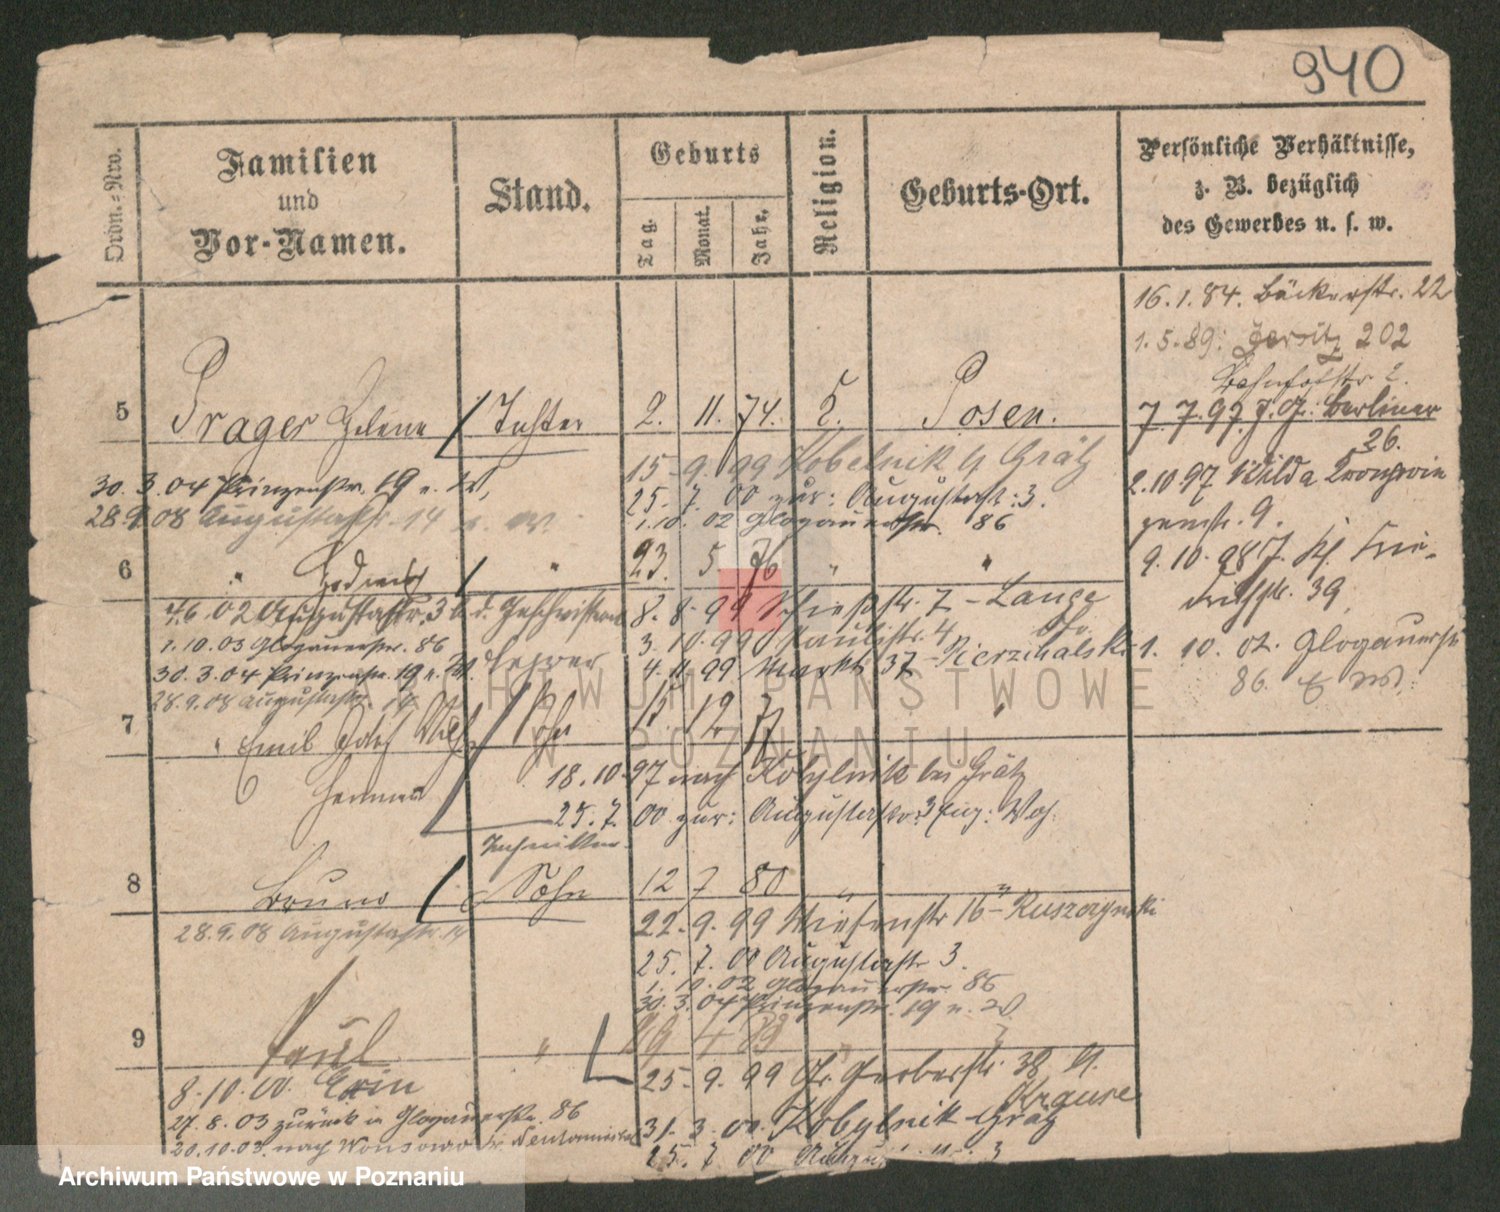 940
Ordn.-Nro.
Familien
und
Vor-Namen.
Stand.
Geburts
Tag.
Monat.
Jahr.
Religion.
Geburts-Ort.
Persönliche Verhältnisse,
z. B. bezüglich
des Gewerbes u. s. w.
16.1.84. Bäckerstr. 22
1.5.89. Jersitz 202
Bahnhofstr 2.
5 Prager Helene Tochter 2. 11. 74. Posen.
7 7.97 Berliner
26.
15. 9. 99 Kobelnik Grätz
30. 3. 04 Prinzenstr. 19 u. W.
25. 7. 00 zur: Augustastr: 3.
2.10 97 Wilda Kronprin
zenstr. 9.
28.9.08 Augustastr. 14
1.10. 02 Glogauerstr. 86
6 " Hedwig " 23. 5. 76 " "
9. 10. 98
drichstr. 39
4.6.02 Augustastr. 3 b. d. Geschwistern
8. 8. 99 Schießstr. 7 - Lange
1.10.03 Glogauerstr. 86
3. 10. 99 Paulistr. 4
30. 3. 04 Prinzenstr. 19 u. W. Lehrer
4. 11. 99 Markt 37 - Pierzchalski
1. 10. 02. Glogauerstr
86.
28.9.08 Augustastr. 14
7 Emil Josef 15 12 77 "
Hermann
18. 10. 97 nach Kobylnik bei Grätz
25. 7. 00 zur: Augustastr: 3
Techniker
8 Bruno Sohn 12 7 80 " "
22. 9. 99 Wiesenstr 16 - Ruszczynski
28.9.08 Augustastr. 14
25. 7. 00 Augustastr 3.
1. 10. 02 Glogauerstr. 86
30. 3. 04 Prinzenstr. 19 u. W.
9 Paul " 19 4 83 "
25. 9. 99 Gr. Gerberstr. 38
Krause
8.10.00.
27. 8. 03 zurück in Glogauerstr. 86
31. 3. 00. Kobylnik - Grätz
20.10.03. nach Wonsowo
25. 7 00 3
ARCHIWUM PAŃSTWOWE
W POZNANIU
Archiwum Państwowe w Poznaniu